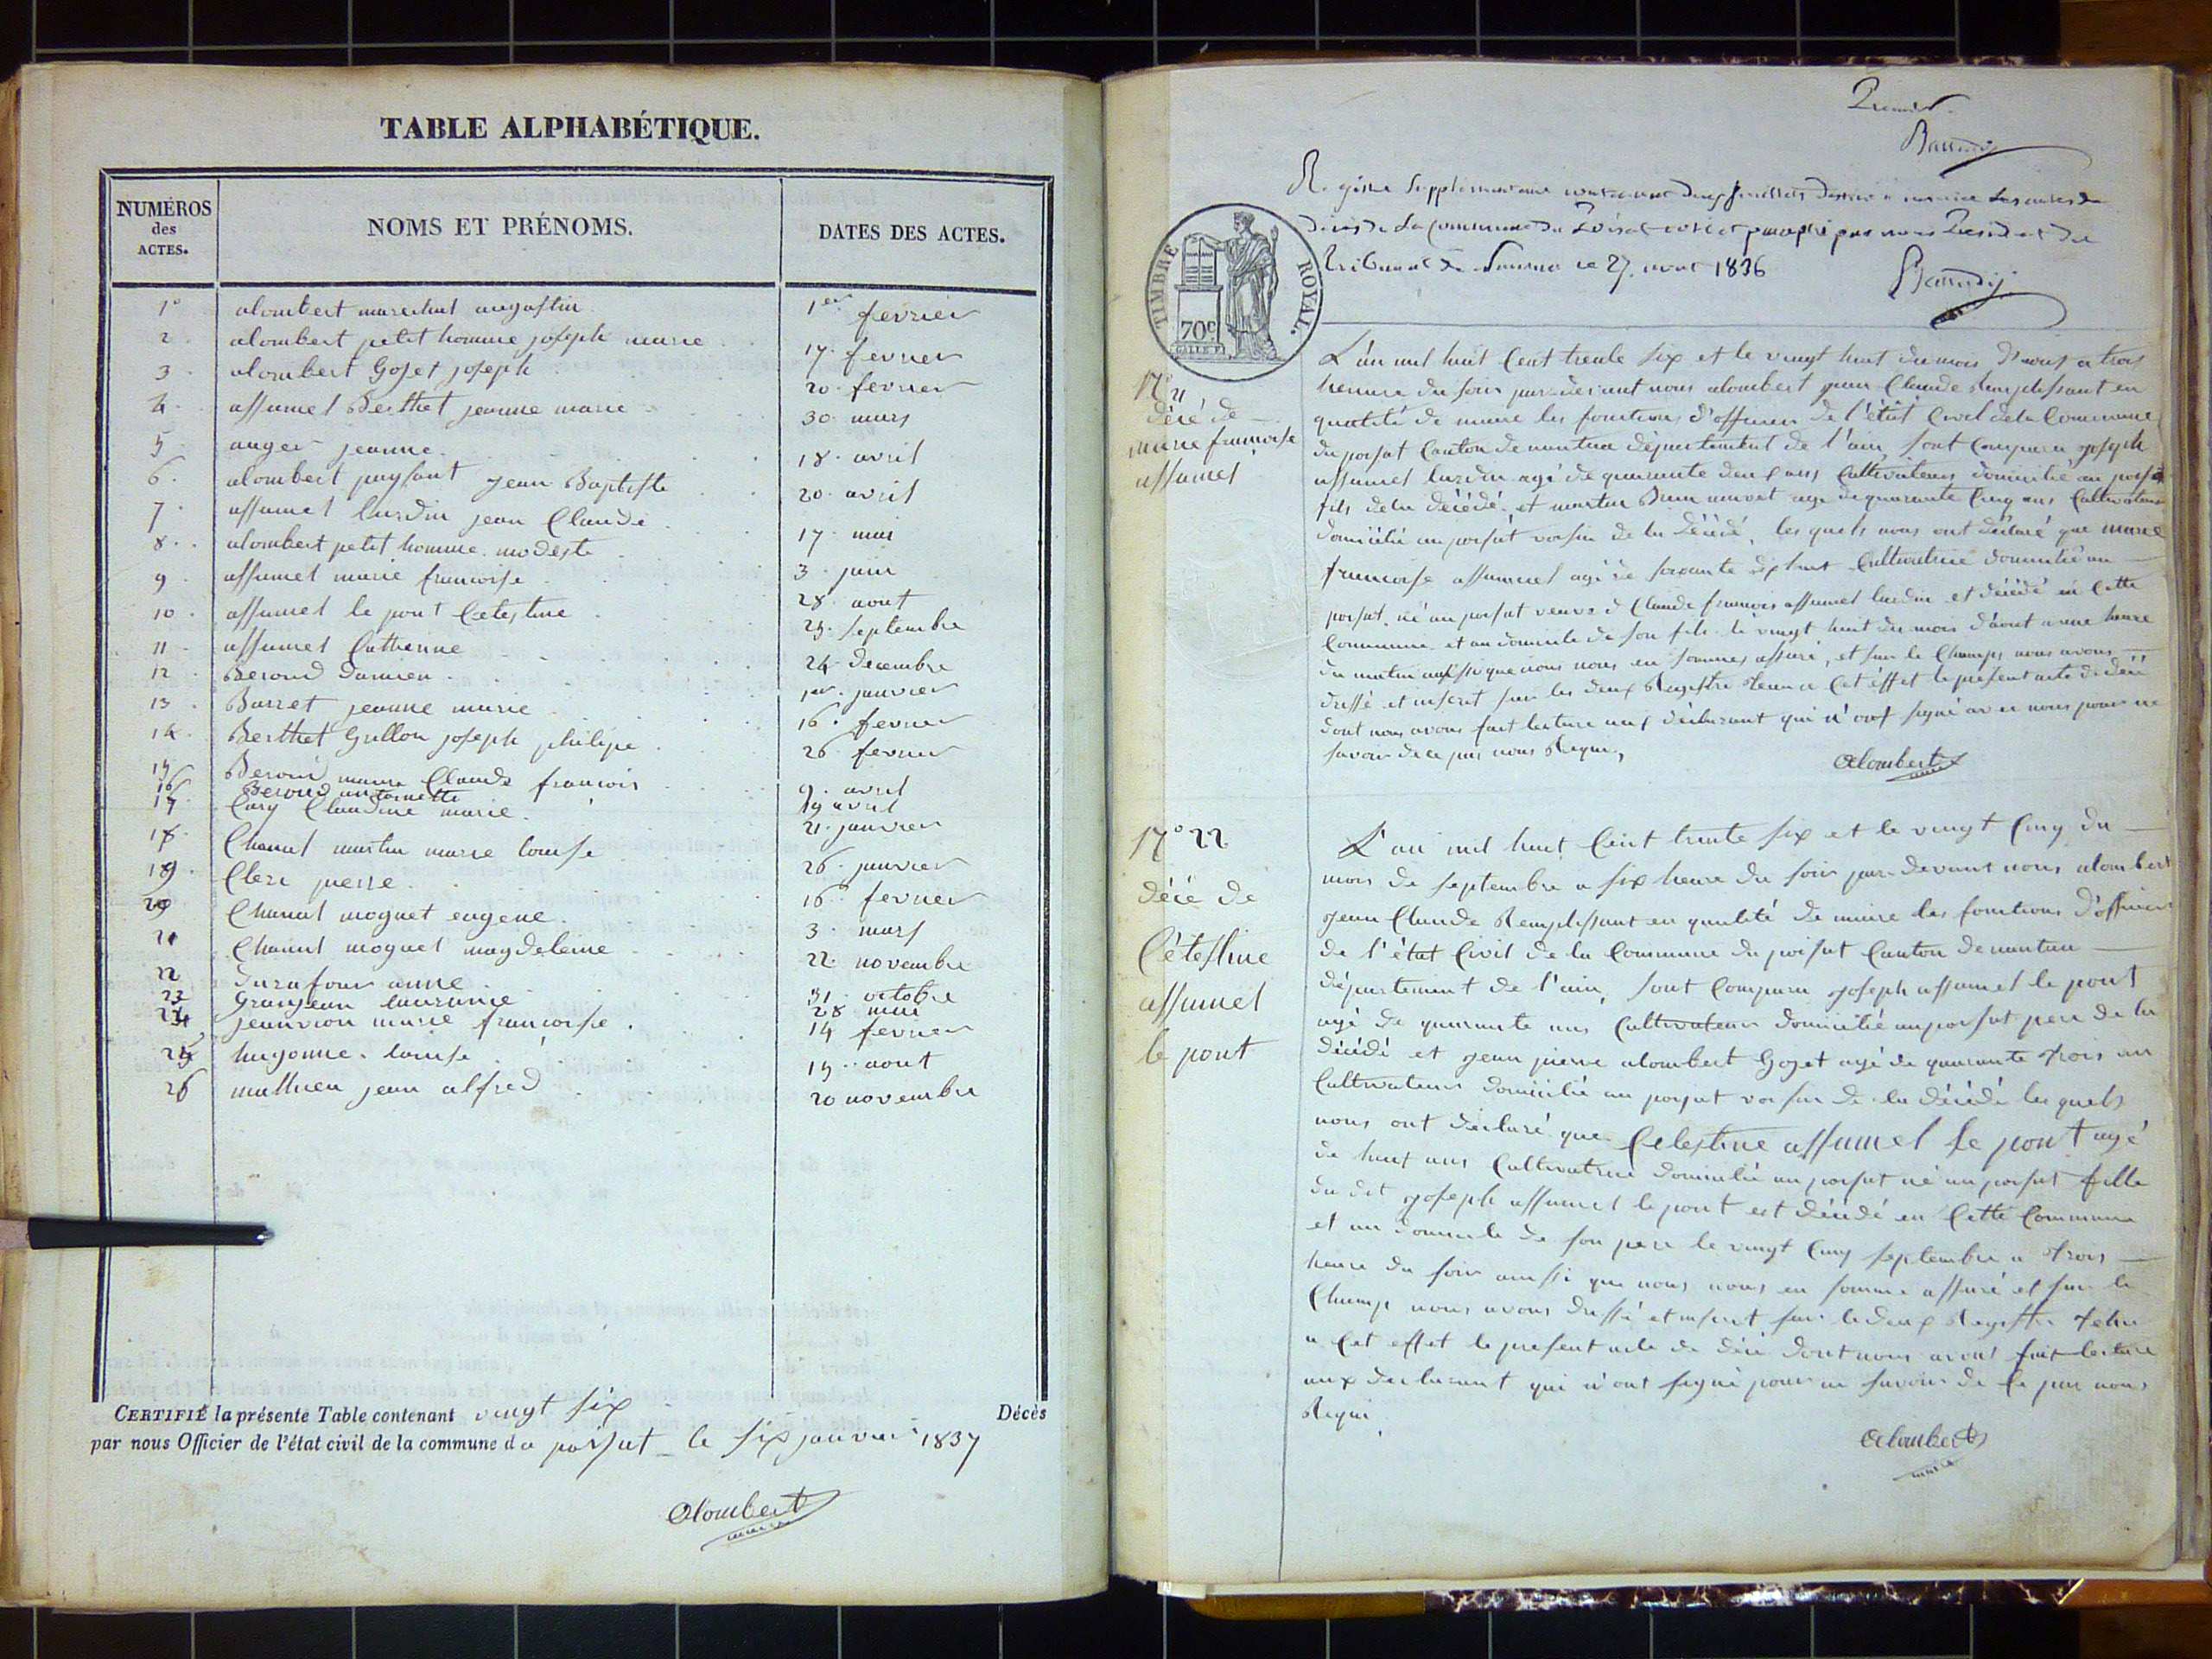 TABLE ALPHABÉTIQUE.
NUMÉROS des ACTES.
NOMS ET PRÉNOMS.
DATES DES ACTES.
1° alombert marechal augustin 1er fevrier
2. alombert petit homme joseph marie 17. fevrier
3. alombert Gojet joseph 20. fevrier
4. assumel Berthet jeanne marie 30. mars
5. auger jeanne 18. avril
6. alombert paysant jean Baptiste 20. avril
7. assumel lurdin jean Claude 17. mai
8. alombert petit homme modeste 3. juin
9. assumel marie francoise 28. aout
10. assumel le pont Celestine 25. septembre
11. assumel Catherine 24. decembre
12. Beroud damien 1er. janvier
13. Barret jeanne marie 16. fevrier
14. Berthet Grillon joseph philipe 26. fevrier
15 Beroud Claude francois 9. avril
16 Beroud antoinette 19 avril
17. Cury Claudine marie 21. janvier
18. Chanal martin marie louise 26. janvier
19. Clerc pierre 16. fevrier
20 Chanal moguet eugene 3. mars
21 Chanal moguet magdeleine 22. novembre
22 durafour anne 31. octobre
23 Granjean laurance 28 mai
24 jeanvion marie francoise 14 fevrier
25 hugonne louise 15. aout
26 mathieu jean alfred 20 novembre
CERTIFIÉ la présente Table contenant vingt six Décès
par nous Officier de l'état civil de la commune du poisat le six janvier 1837
Alombert
maire
Premier
Registre supplementaire contenant deux feuillets destiné a inscrire les actes de
décès de la commune du Poisat coté et paraphé par nous President du
Tribunal de Nantua le 27. aout 1836
TIMBRE ROYAL.
70c
N° 21
décé de
marie francoise
assumel
L'an mil huit Cent trente six et le vingt huit du mois d'aout a trois
heure du soir par devant nous alombert jean Claude Remplissant en
qualité de maire les fonctions d'officier de l'état Civil de la Commune
du poisat Canton de nantua département de l'ain, sont Comparu joseph
assumel lurdin agé de quarante deux ans Cultivateur domicilié au poisat
fils de la décédé et martin Brun agé de quarante Cinq ans Cultivateur
domicilié au poisat voisin de la décédé, les quels nous ont déclaré que marie
francoise assumel agé de soixante dix huit Cultivatrice domicilié au
poisat né au poisat veuve d Claude francois assumel lurdin est décédé en Cette
Commune et au domicile de son fils le vingt huit du mois d'aout a une heure
du matin aussi que nous nous en sommes assuré, et sur le Champs nous avons
dressé et inscrit sur les deux Registre tenu a Cet effet le présent acte de décé
dont nous avons fait lecture aux déclarant qui n'ont signé avec nous pour ne
savoir de ce par nous Requi,
Alombert
N° 22
décé de
Célestine
assumel
le pont
L'an mil huit Cent trente six et le vingt Cinq du
mois de septembre a six heure du soir par devant nous alombert
jean Claude Remplissant en qualité de maire les fonctions d'officier
de l'état Civil de la Commune du poisat Canton de nantua
département de l'ain, sont Comparu joseph assumel le pont
agé de quarante ans Cultivateur domicilié au poisat pere de la
décédé et jean pierre alombert Gojet agé de quarante trois an
Cultivateur domicilié au poisat voisin de la décédé les quels
nous ont déclaré que Celestine assumel le pont agé
de huit ans Cultivatrice domicilié au poisat né au poisat fille
du dit joseph assumel le pont est décédé en Cette Commune
et au domicile de son pere le vingt Cinq septembre a trois
heure du soir aussi que nous nous en somme assuré et sur le
Champ nous avons dressé et inscrit sur le deux Registre tenu
a Cet effet le présent acte de décé dont nous avons fait lecture
aux declarant qui n'ont signé pour ne savoir de Ce par nous
Requi.
Alombert
maire